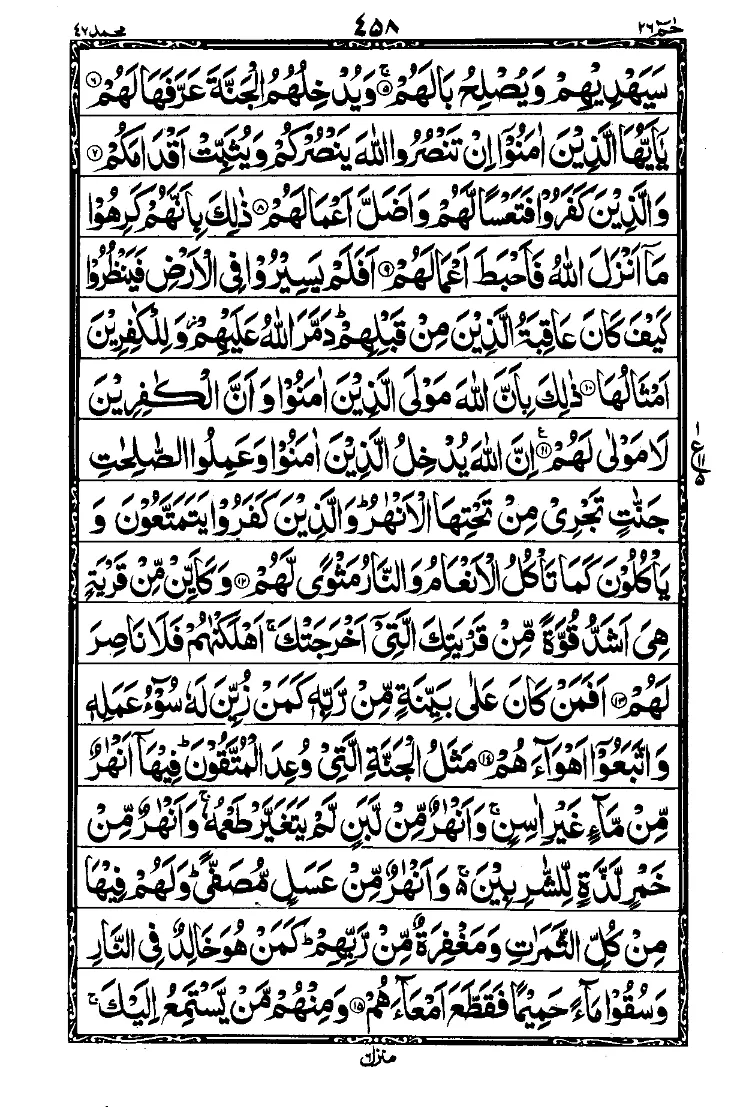 حٰمٓ ٢٦ ٤٥٨ محمد ٤٧
سَيَهْدِيْهِمْ وَيُصْلِحُ بَالَهُمْ ۚ‏﴿۵﴾ وَيُدْخِلُهُمُ الْجَنَّةَ عَرَّفَهَا لَهُمْ ﴿۶﴾
يٰۤاَيُّهَا الَّذِيْنَ اٰمَنُوْۤا اِنْ تَنْصُرُوا اللّٰهَ يَنْصُرْكُمْ وَيُثَبِّتْ اَقْدَامَكُمْ ﴿۷﴾
وَالَّذِيْنَ كَفَرُوْا فَتَعْسًا لَّهُمْ وَاَضَلَّ اَعْمَالَهُمْ ﴿۸﴾ ذٰلِكَ بِاَنَّهُمْ كَرِهُوْا
مَاۤ اَنْزَلَ اللّٰهُ فَاَحْبَطَ اَعْمَالَهُمْ ﴿۹﴾ اَفَلَمْ يَسِيْرُوْا فِى الْاَرْضِ فَيَنْظُرُوْا
كَيْفَ كَانَ عَاقِبَةُ الَّذِيْنَ مِنْ قَبْلِهِمْ ؕ دَمَّرَ اللّٰهُ عَلَيْهِمْ ؗ وَلِلْكٰفِرِيْنَ
اَمْثَالُهَا ﴿۱۰﴾ ذٰلِكَ بِاَنَّ اللّٰهَ مَوْلَى الَّذِيْنَ اٰمَنُوْا وَاَنَّ الْكٰفِرِيْنَ
لَا مَوْلٰى لَهُمْ ﴿۱۱﴾ اِنَّ اللّٰهَ يُدْخِلُ الَّذِيْنَ اٰمَنُوْا وَعَمِلُوا الصّٰلِحٰتِ
جَنّٰتٍ تَجْرِىْ مِنْ تَحْتِهَا الْاَنْهٰرُ ؕ وَالَّذِيْنَ كَفَرُوْا يَتَمَتَّعُوْنَ وَ
يَاْكُلُوْنَ كَمَا تَاْكُلُ الْاَنْعَامُ وَالنَّارُ مَثْوًى لَّهُمْ ﴿۱۲﴾ وَكَاَيِّنْ مِّنْ قَرْيَةٍ
هِىَ اَشَدُّ قُوَّةً مِّنْ قَرْيَتِكَ الَّتِىْۤ اَخْرَجَتْكَ ۚ اَهْلَكْنٰهُمْ فَلَا نَاصِرَ
لَهُمْ ﴿۱۳﴾ اَفَمَنْ كَانَ عَلٰى بَيِّنَةٍ مِّنْ رَّبِّهٖ كَمَنْ زُيِّنَ لَهٗ سُوْٓءُ عَمَلِهٖ
وَاتَّبَعُوْۤا اَهْوَآءَهُمْ ﴿۱۴﴾ مَثَلُ الْجَنَّةِ الَّتِىْ وُعِدَ الْمُتَّقُوْنَ ؕ فِيْهَاۤ اَنْهٰرٌ
مِّنْ مَّآءٍ غَيْرِ اٰسِنٍ ۚ وَاَنْهٰرٌ مِّنْ لَّبَنٍ لَّمْ يَتَغَيَّرْ طَعْمُهٗ ۚ وَاَنْهٰرٌ مِّنْ
خَمْرٍ لَّذَّةٍ لِّلشّٰرِبِيْنَ ۚ۬ وَاَنْهٰرٌ مِّنْ عَسَلٍ مُّصَفًّى ؕ وَلَهُمْ فِيْهَا
مِنْ كُلِّ الثَّمَرٰتِ وَمَغْفِرَةٌ مِّنْ رَّبِّهِمْ ؕ كَمَنْ هُوَ خَالِدٌ فِى النَّارِ
وَسُقُوْا مَآءً حَمِيْمًا فَقَطَّعَ اَمْعَآءَهُمْ ﴿۱۵﴾ وَمِنْهُمْ مَّنْ يَّسْتَمِعُ اِلَيْكَ ۚ
منزل ٦